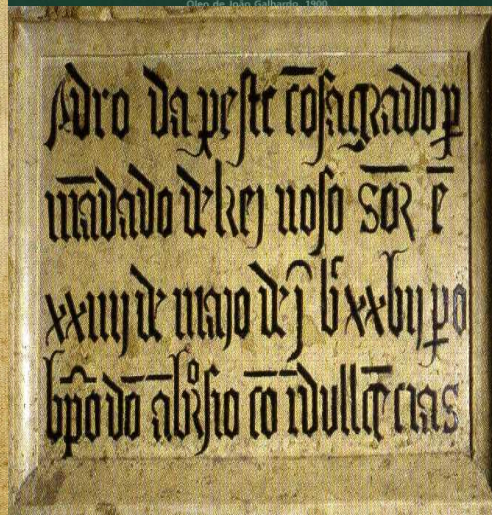 Óleo de João Galhardo, 1900
Adro da peste cōsagrado ꝑ
mādado delrej noso sōr ē
xxiiij de majo de j bc xxbij ꝑo
bp̄o dō ābrosio cō īdullgēcias